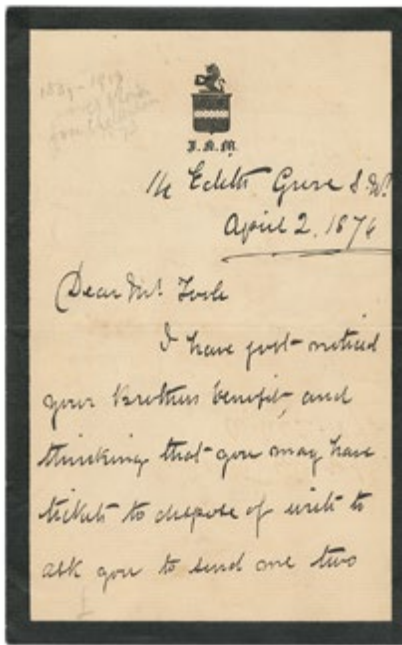 J.N.M.
Edith Grove S.W.
April 2, 1876
Dear Mr. Toole
I have just noticed
your Brothers benefit, and
thinking that you may have
tickets to dispose of write to
ask you to send me two